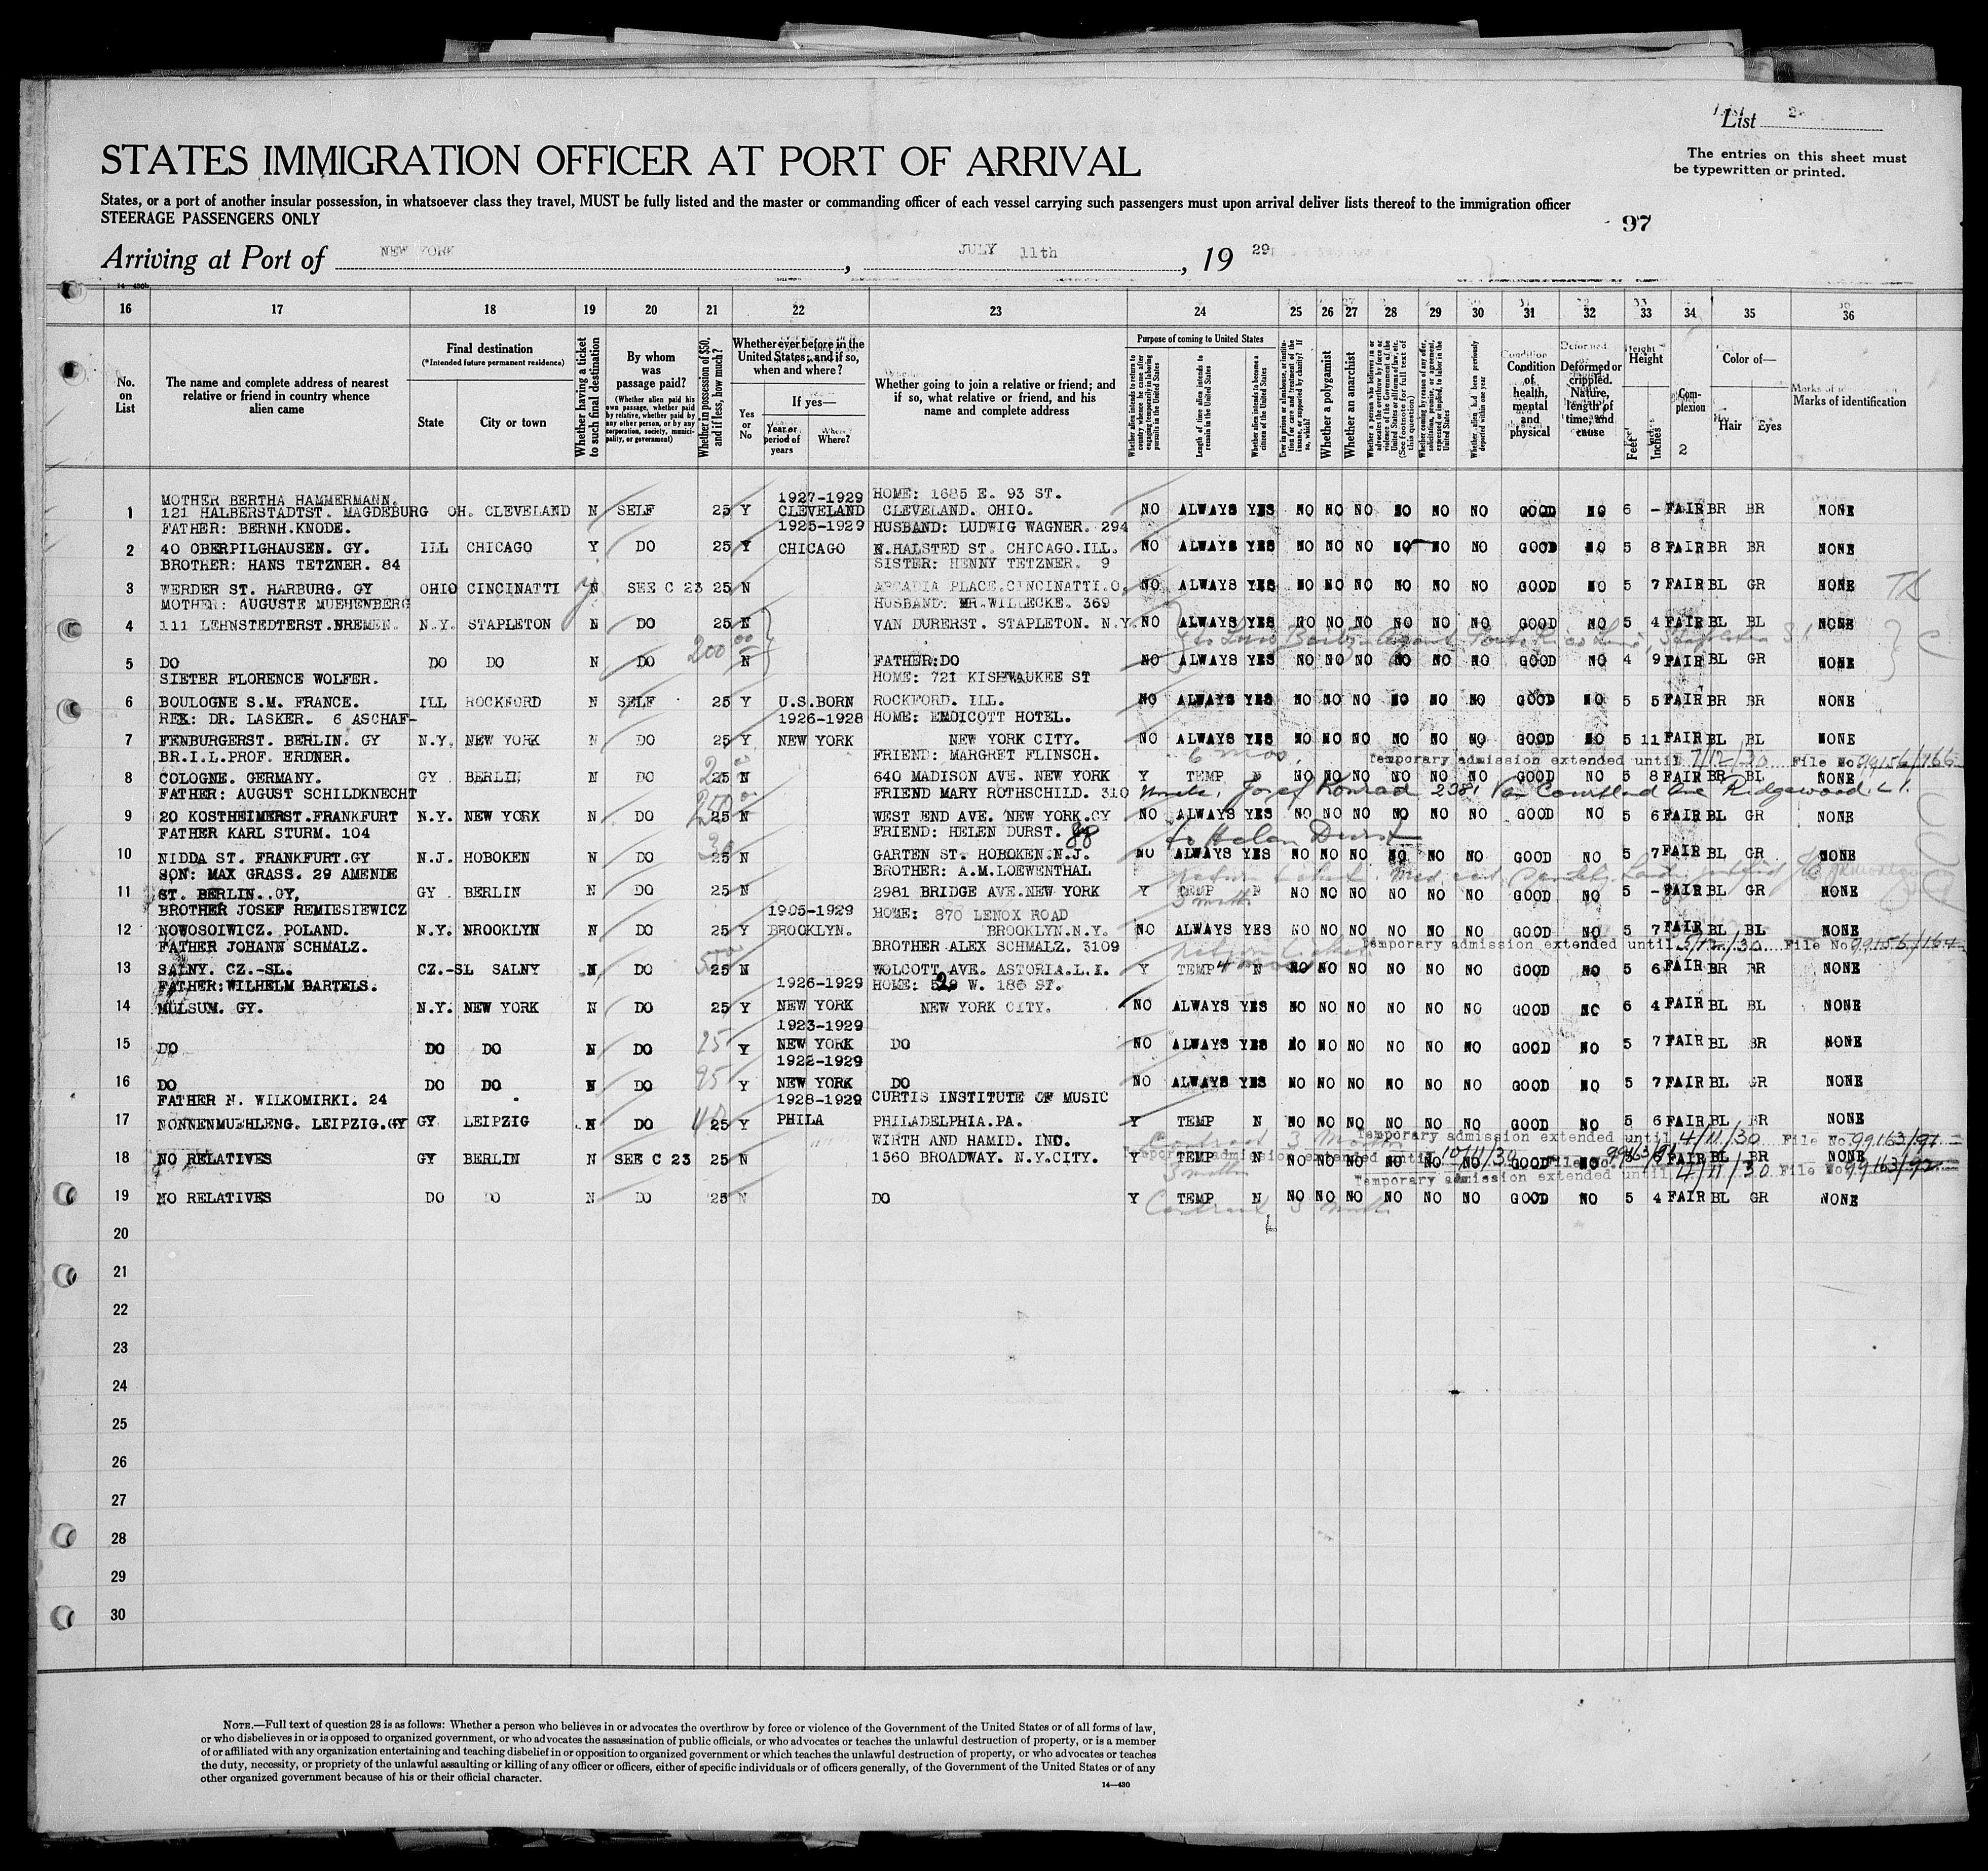 List 2
The entries on this sheet must
be typewritten or printed.
STATES IMMIGRATION OFFICER AT PORT OF ARRIVAL
States, or a port of another insular possession, in whatsoever class they travel, MUST be fully listed and the master or commanding officer of each vessel carrying such passengers must upon arrival deliver lists thereof to the immigration officer
STEERAGE PASSENGERS ONLY
97
Arriving at Port of NEW YORK, JULY 11th, 19 29
14—430b
16 17 18 19 20 21 22 23 24 25 26 27 28 29 30 31 32 33 34 35 36
No. on List
The name and complete address of nearest relative or friend in country whence alien came
Final destination
(*Intended future permanent residence)
State
City or town
Whether having a ticket to such final destination
By whom was passage paid?
(Whether alien paid his own passage, whether paid by relative, whether paid by any other person, or by any corporation, society, municipality, or government)
Whether in possession of $50, and if less, how much?
Whether ever before in the United States; and if so, when and where?
Yes or No
If yes—
Year or period of years
Where?
Whether going to join a relative or friend; and if so, what relative or friend, and his name and complete address
Purpose of coming to United States
Whether alien intends to return to country whence he came after engaging temporarily in laboring pursuits in the United States
Length of time alien intends to remain in the United States
Whether alien intends to become a citizen of the United States
Ever in prison or almshouse, or institution for care and treatment of the insane, or supported by charity? If so, which?
Whether a polygamist
Whether an anarchist
Whether a person who believes in or advocates the overthrow by force or violence of the Government of the United States or all forms of law, etc. (See footnote for full text of this question)
Whether coming by reason of any offer, solicitation, promise, or agreement, expressed or implied, to labor in the United States
Whether alien had been previously deported within one year
Condition of health, mental and physical
Deformed or crippled. Nature, length of time, and cause
Height
Feet
Inches
Complexion
2
Color of—
Hair
Eyes
Marks of identification
MOTHER BERTHA HAMMERMANN. 1927-1929 HOME: 1685 E. 93 ST.
1 121 HALBERSTADTST. MAGDEBURG OH. CLEVELAND N SELF 25 Y CLEVELAND CLEVELAND. OHIO. NO ALWAYS YES NO NO NO NO NO NO GOOD NO 6 - FAIR BR BR NONE
FATHER: BERNH.KNODE. 1925-1929 HUSBAND: LUDWIG WAGNER. 294
2 40 OBERPILGHAUSEN. GY. ILL CHICAGO Y DO 25 Y CHICAGO N.HALSTED ST. CHICAGO.ILL. NO ALWAYS YES NO NO NO NO NO NO GOOD NO 5 8 FAIR BR BR NONE
BROTHER: HANS TETZNER. 84 SISTER: HENNY TETZNER. 9
3 WERDER ST. HARBURG. GY OHIO CINCINATTI N SEE C 23 25 N ARCADIA PLACE.CINCINATTI.O. NO ALWAYS YES NO NO NO NO NO NO GOOD NO 5 7 FAIR BL GR NONE
MOTHER: AUGUSTE MUEHENBERG HUSBAND: MR.WILLECKE. 369
4 111 LEHNSTEDTERST.NREMEN. N.Y. STAPLETON N DO 25 N VAN DURERST. STAPLETON. N.Y. NO ALWAYS YES NO NO NO NO NO NO GOOD NO 5 4 FAIR BL BL NONE
200 00
5 DO DO DO N DO N FATHER:DO NO ALWAYS YES NO NO NO NO NO NO GOOD NO 4 9 FAIR BL GR NONE
SISTER FLORENCE WOLFER. HOME: 721 KISHWAUKEE ST
6 BOULOGNE S.M. FRANCE. ILL ROCKFORD N SELF 25 Y U.S.BORN ROCKFORD. ILL. NO ALWAYS YES NO NO NO NO NO NO GOOD NO 5 5 FAIR BR BR NONE
REX: DR. LASKER. 6 ASCHAF- 1926-1928 HOME: ENDICOTT HOTEL.
7 FENBURGERST. BERLIN. GY N.Y. NEW YORK N DO 25 Y NEW YORK NEW YORK CITY. NO ALWAYS YES NO NO NO NO NO NO GOOD NO 5 11 FAIR BL BL NONE
BR.I.L.PROF. ERDNER. FRIEND: MARGRET FLINSCH. 6 mos. Temporary admission extended until 7/12/30 File No. 99156/166
8 COLOGNE. GERMANY. GY BERLIN, N DO 25 N 640 MADISON AVE. NEW YORK Y TEMP N NO NO NO NO NO NO GOOD NO 5 8 FAIR BR BL NONE
FATHER: AUGUST SCHILDKNECHT FRIEND MARY ROTHSCHILD. 310 Uncle, Josef Konrad 2381 Van Courtland Ave Ridgewood. L.I.
9 20 KOSTHEIMERST.FRANKFURT N.Y. NEW YORK N DO 25 N WEST END AVE. NEW YORK.CY NO ALWAYS YES NO NO NO NO NO NO GOOD NO 5 6 FAIR BL GR NONE
FATHER KARL STURM. 104 FRIEND: HELEN DURST. 88 to Helen Durst
10 NIDDA ST. FRANKFURT.GY N.J. HOBOKEN N DO 25 N GARTEN ST. HOBOKEN.N.J. NO ALWAYS YES NO NO NO NO NO NO GOOD NO 5 7 FAIR BL GR NONE
SON: MAX GRASS. 29 AMENDE BROTHER: A.M.LOEWENTHAL
11 ST. BERLIN..GY, GY BERLIN N DO 25 N 2981 BRIDGE AVE.NEW YORK Y TEMP N NO NO NO NO NO NO GOOD NO 5 - FAIR BL GR NONE
BROTHER JOSEF REMIESIEWICZ 1905-1929 HOME: 870 LENOX ROAD 3 months
12 NOWOSOIWICZ. POLAND. N.Y. NROOKLYN N DO 25 Y BROOKLYN. BROOKLYN.N.Y. NO ALWAYS YES NO NO NO NO NO NO GOOD NO 5 7 FAIR BL BL NONE
FATHER JOHANN SCHMALZ. BROTHER ALEX SCHMALZ. 3109 Return ticket. Temporary admission extended until File No 99156/164
13 SALNY. CZ.-SL. CZ.-SL SALNY N DO 25 N WOLCOTT AVE. ASTORIA.L.I. Y TEMP 4 mos N NO NO NO NO NO GOOD NO 5 6 FAIR BR BR NONE
FATHER:WILHELM BARTELS. 1926-1929 HOME: 529 W. 186 ST.
14 MULSUM. GY. N.Y. NEW YORK N DO 25 Y NEW YORK NEW YORK CITY. NO ALWAYS YES NO NO NO NO NO NO GOOD NO 6 4 FAIR BL BL NONE
1923-1929
15 DO DO DO N DO 25 Y NEW YORK DO NO ALWAYS YES NO NO NO NO NO NO GOOD NO 5 7 FAIR BL BR NONE
1922-1929
16 DO DO DO N DO 95 Y NEW YORK DO NO ALWAYS YES NO NO NO NO NO NO GOOD NO 5 7 FAIR BL GR NONE
FATHER N. WILKOMIRKI. 24 1928-1929 CURTIS INSTITUTE OF MUSIC
17 NONNENMUEHLENG. LEIPZIG.GY GY LEIPZIG N DO 25 Y PHILA PHILADELPHIA.PA. Y TEMP N NO NO NO NO NO NO GOOD NO 5 6 FAIR BL BR NONE
WIRTH AND HAMID. INC. Contract 3 Months Temporary admission extended until 4/11/30 File No 99163/91
18 NO RELATIVES GY BERLIN N SEE C 23 25 N 1560 BROADWAY. N.Y.CITY. Y TEMP N NO NO NO NO NO NO GOOD NO 5 FAIR BL BR NONE
Temporary admission extended until 10/11/30 File No. 99163/91
3 months Temporary admission extended until 4/11/30 File No 99163/92
19 NO RELATIVES DO DO N DO 25 N DO Y TEMP N NO NO NO NO NO NO GOOD NO 5 4 FAIR BL GR NONE
Contract 3 months
20
21
22
23
24
25
26
27
28
29
30
NOTE.—Full text of question 28 is as follows: Whether a person who believes in or advocates the overthrow by force or violence of the Government of the United States or of all forms of law,
or who disbelieves in or is opposed to organized government, or who advocates the assassination of public officials, or who advocates or teaches the unlawful destruction of property, or is a member
of or affiliated with any organization entertaining and teaching disbelief in or opposition to organized government or which teaches the unlawful destruction of property, or who advocates or teaches
the duty, necessity, or propriety of the unlawful assaulting or killing of any officer or officers, either of specific individuals or of officers generally, of the Government of the United States or of any
other organized government because of his or their official character.
14—430